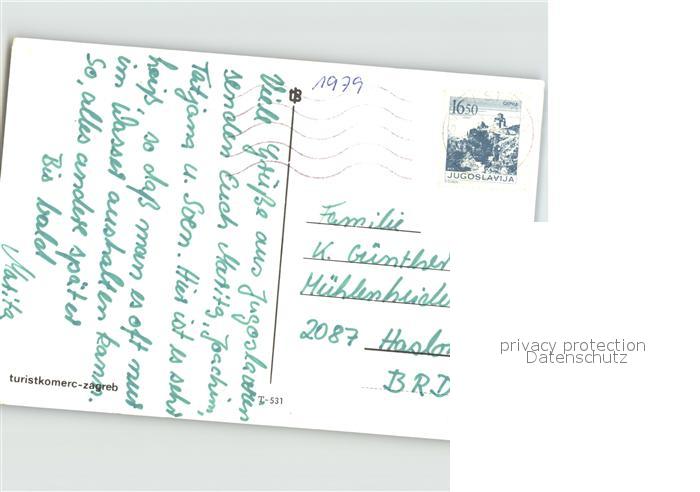 Viele Grüße aus Jugoslawien
senden Euch Marita, Joachim,
Tatjana u. Sven. Hier ist es sehr
heiß, so daß man es oft nur
im Wasser aushalten kann.
So, alles andere später
Bis bald
Marita
1979
16.50
JUGOSLAVIJA
Familie
K. Günther
Mühlenheide
2087 Haslo
BRD
turistkomerc-zagreb
T-531
privacy protection
Datenschutz